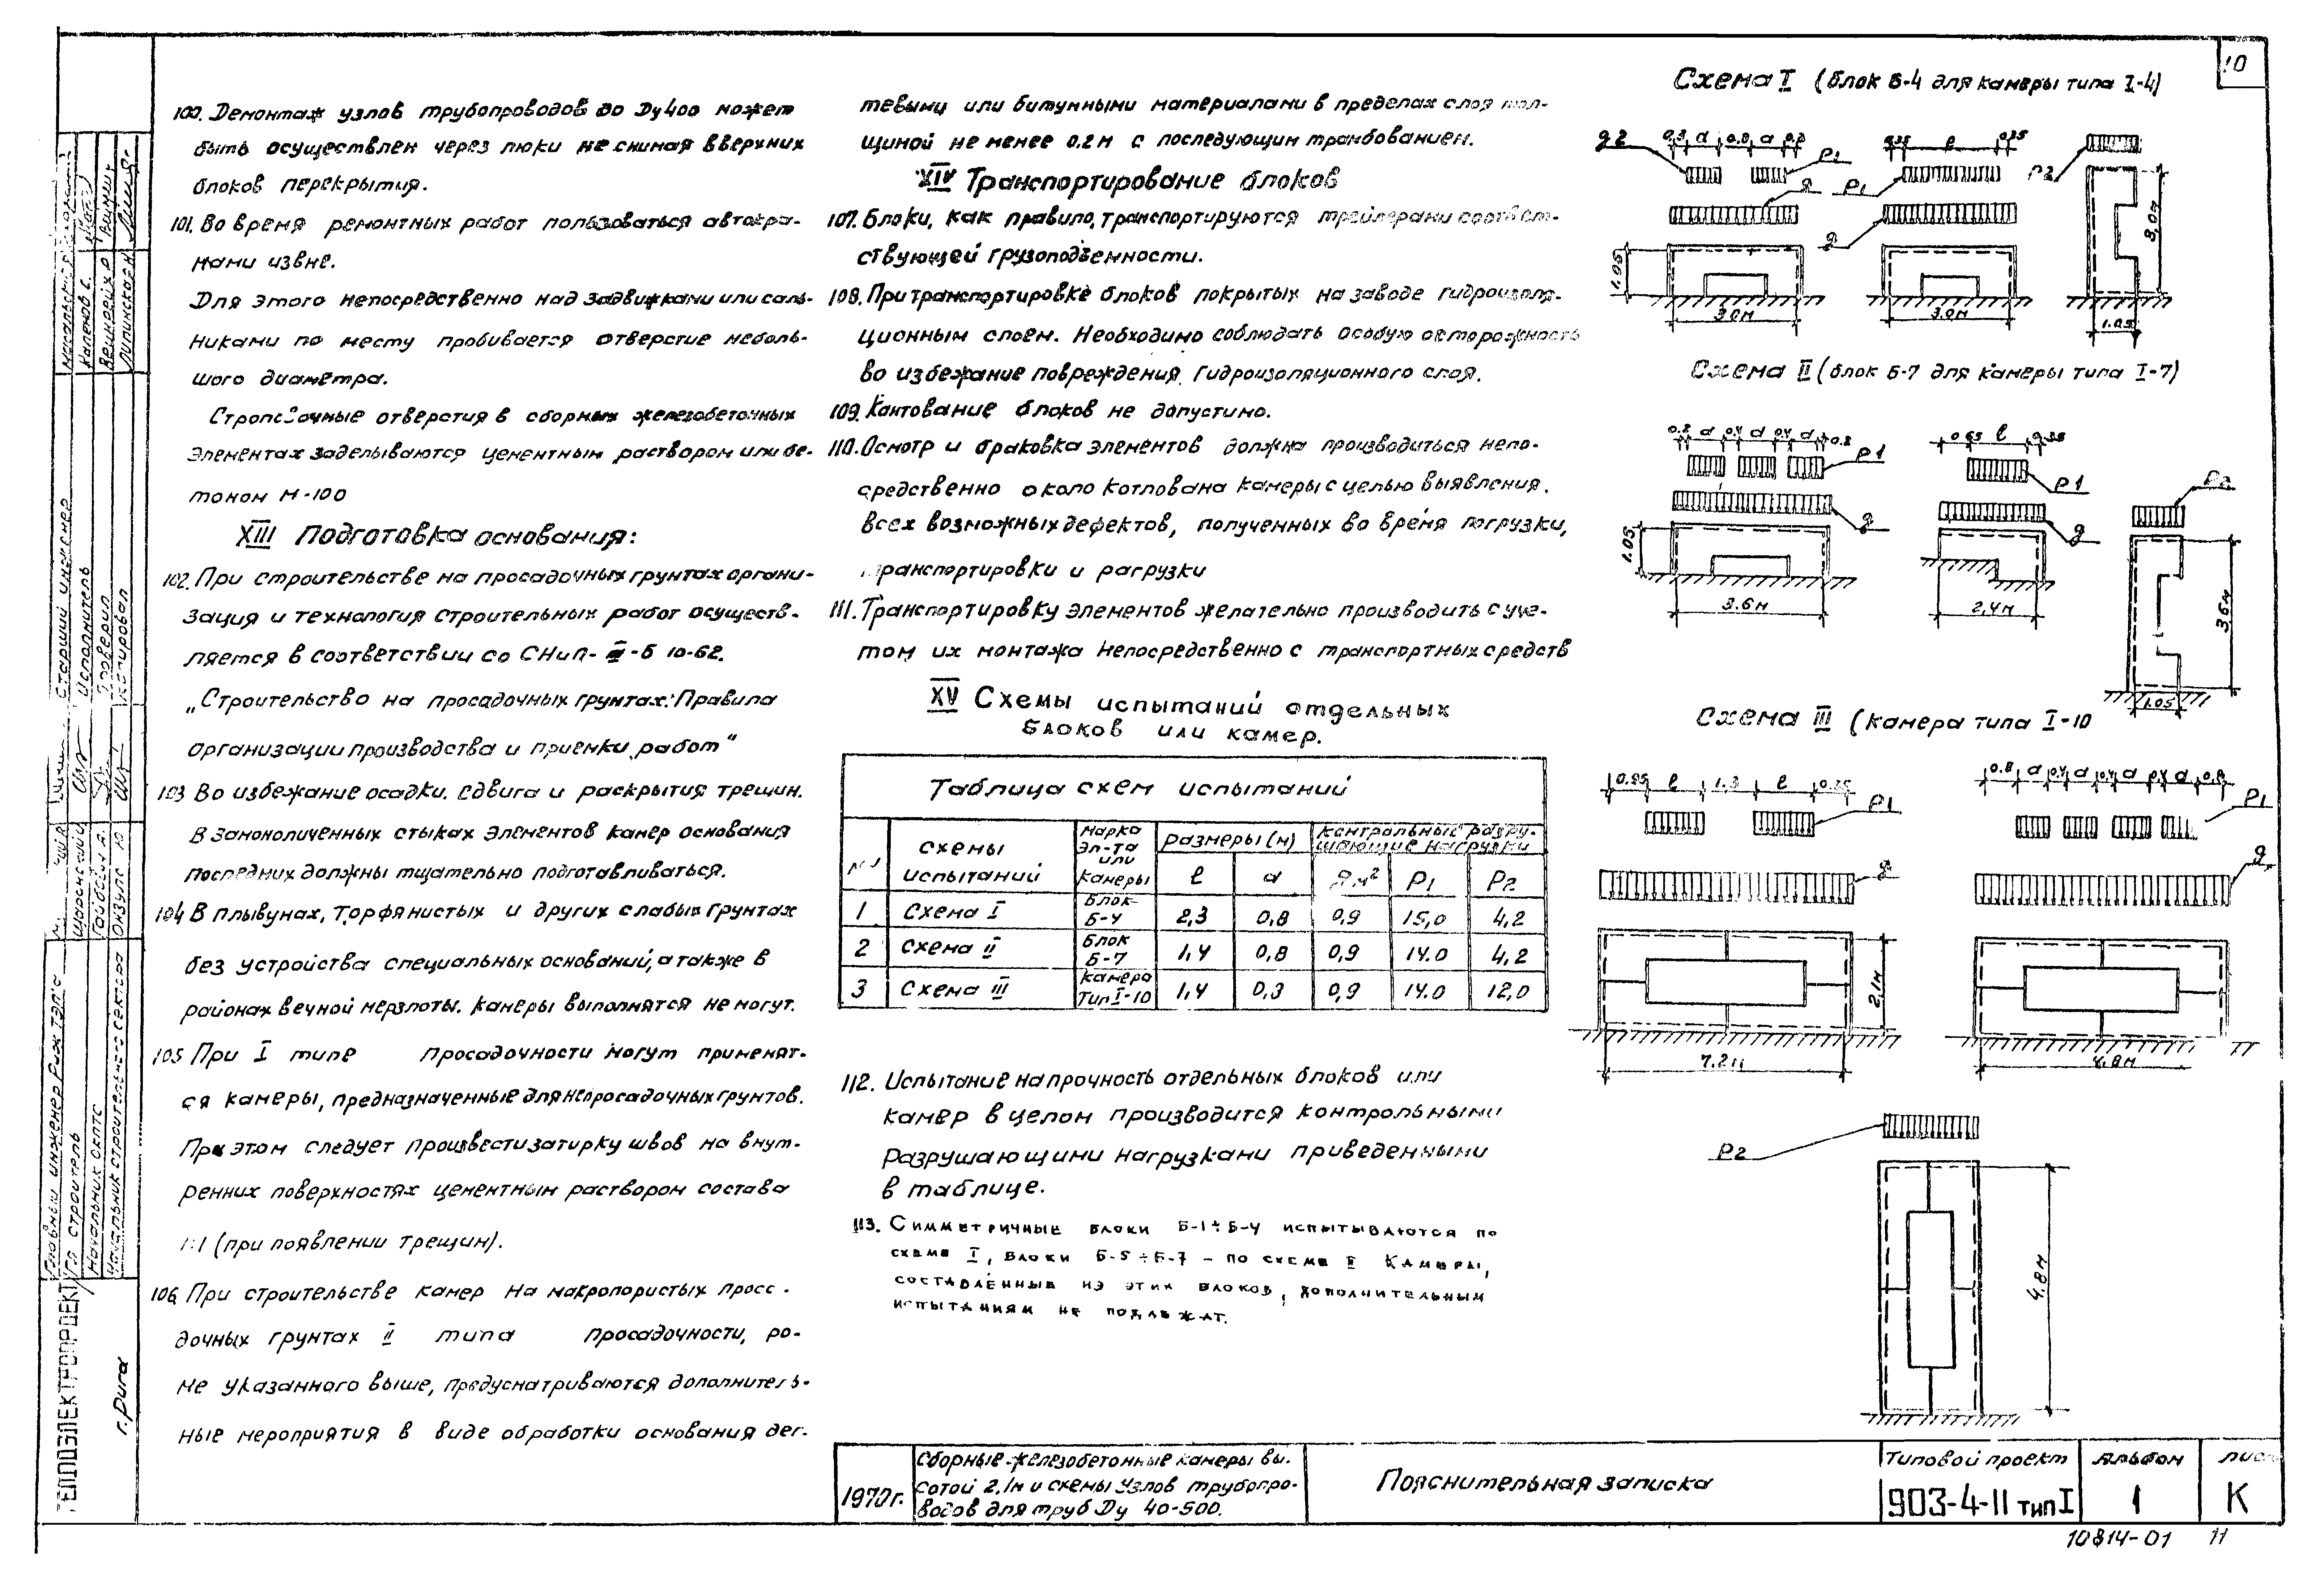 10
100. Демонтаж узлов трубопроводов до Ду400 может
быть осуществлен через люки не снимая вверхних
блоков перекрытия.
101. Во время ремонтных работ пользоваться автокра-
нами извне.
Для этого непосредственно над задвижками или саль-
никами по месту пробивается отверстие неболь-
шого диаметра.
Строповочные отверстия в сборных железобетонных
элементах заделываются цементным раствором или бе-
тоном М-100
XIII Подготовка основания:
102. При строительстве на просадочных грунтах органи-
зация и технология строительных работ осуществ-
ляется в соответствии со СНиП-III-Б 10-62.
„Строительство на просадочных грунтах. Правила
организации производства и приемки работ“
103 Во избежание осадки. сдвига и раскрытия трещин.
в замоноличенных стыках элементов камер основания
последних должны тщательно подготавливаться.
104 В плывунах, торфянистых и других слабых грунтах
без устройства специальных оснований, а также в
районах вечной мерзлоты. камеры выполнятся не могут.
105 При I типе просадочности могут применят-
ся камеры, предназначенные для непросадочных грунтов.
При этом следует произвести затирку швов на внут-
ренних поверхностях цементным раствором состава
1:1 (при появлении трещин).
106. При строительстве камер на макропористых прос-
дочных грунтах II типа просадочности, ро-
не указанного выше, предусматриваются дополнитель-
ные мероприятия в виде обработки основания дег-
тевыми или битумными материалами в пределах слоя тол-
щиной не менее 0.2м с последующим трамбованием.
XIV Транспортирование блоков
107. Блоки, как правило, транспортируются трейлерами соответ-
ствующей грузоподъемности.
108. При транспортировке блоков покрытых на заводе гидроизоля-
ционным слоем. Необходимо соблюдать особую осторожность
во избежание повреждения гидроизоляционного слоя.
109. Кантование блоков не допустимо.
110. Осмотр и браковка элементов должна производиться непо-
средственно около котлована камеры с целью выявления.
всех возможных дефектов, полученных во время погрузки,
транспортировки и рагрузки
111. Транспортировку элементов желательно производить с уче-
том их монтажа непосредственно с транспортных средств
XV Схемы испытаний отдельных
блоков или камер.
Таблица схем испытаний
схемы испытаний
марка эл-та или камеры
размеры (м)
контрольные разру-
шающие нагрузки
ℓ a P1 P2
1 Схема I Блок Б-4 2,3 0,8 0,9 15,0 4,2
2 схема II Блок Б-7 1,4 0,8 0,9 14.0 4,2
3 Схема III камера тип I-10 1,4 0,3 0,9 14.0 12,0
112. Испытание на прочность отдельных блоков или
камер в целом производится контрольными
разрушающими нагрузками приведенными
в таблице.
113. Симметричные блоки Б-1÷Б-4 испытываются по
схеме I, блоки Б-5÷Б-7 – по схеме II Камеры,
составленные из этих блоков, дополнительным
испытаниям не подлежат.
Схема I (блок Б-4 для камеры типа I-4)
g2 a 0.8 a P1 g
P1 ℓ 0.35 g
P2
1.05
3.0м
3.0м
3,0м
1.05
Схема II (блок Б-7 для камеры типа I-7)
0.2 a 0.4 a 0.4 a 0.2
P1
g
1.05
3.6м
0.65 ℓ 0.35
P1
g
2,4м
P2
3,6м
1.05
Схема III (камера типа I-10
ℓ 1.3 ℓ
P1
g
2,1м
7.2м
0.8 a 0.4 a 0.4 a 0.4 a 0.8
P1
g
4.8м
P2
4.8м
1970г.
Сборные железобетонные камеры вы-
сотой 2,1м и схемы узлов трубопро-
водов для труб Ду 40-500.
Пояснительная записка
Типовой проект
903-4-11 тип I
Альбом
1
лист
К
10814-01 11
старший инженер
исполнитель
проверил
копировал
Капенов С.
Главный инженер Риж ТЭП'а
Гл строитель
Начальник ОКПТС
Начальник строительного сектора
ТЕПЛОЭЛЕКТРОПРОЕКТ
г. Рига